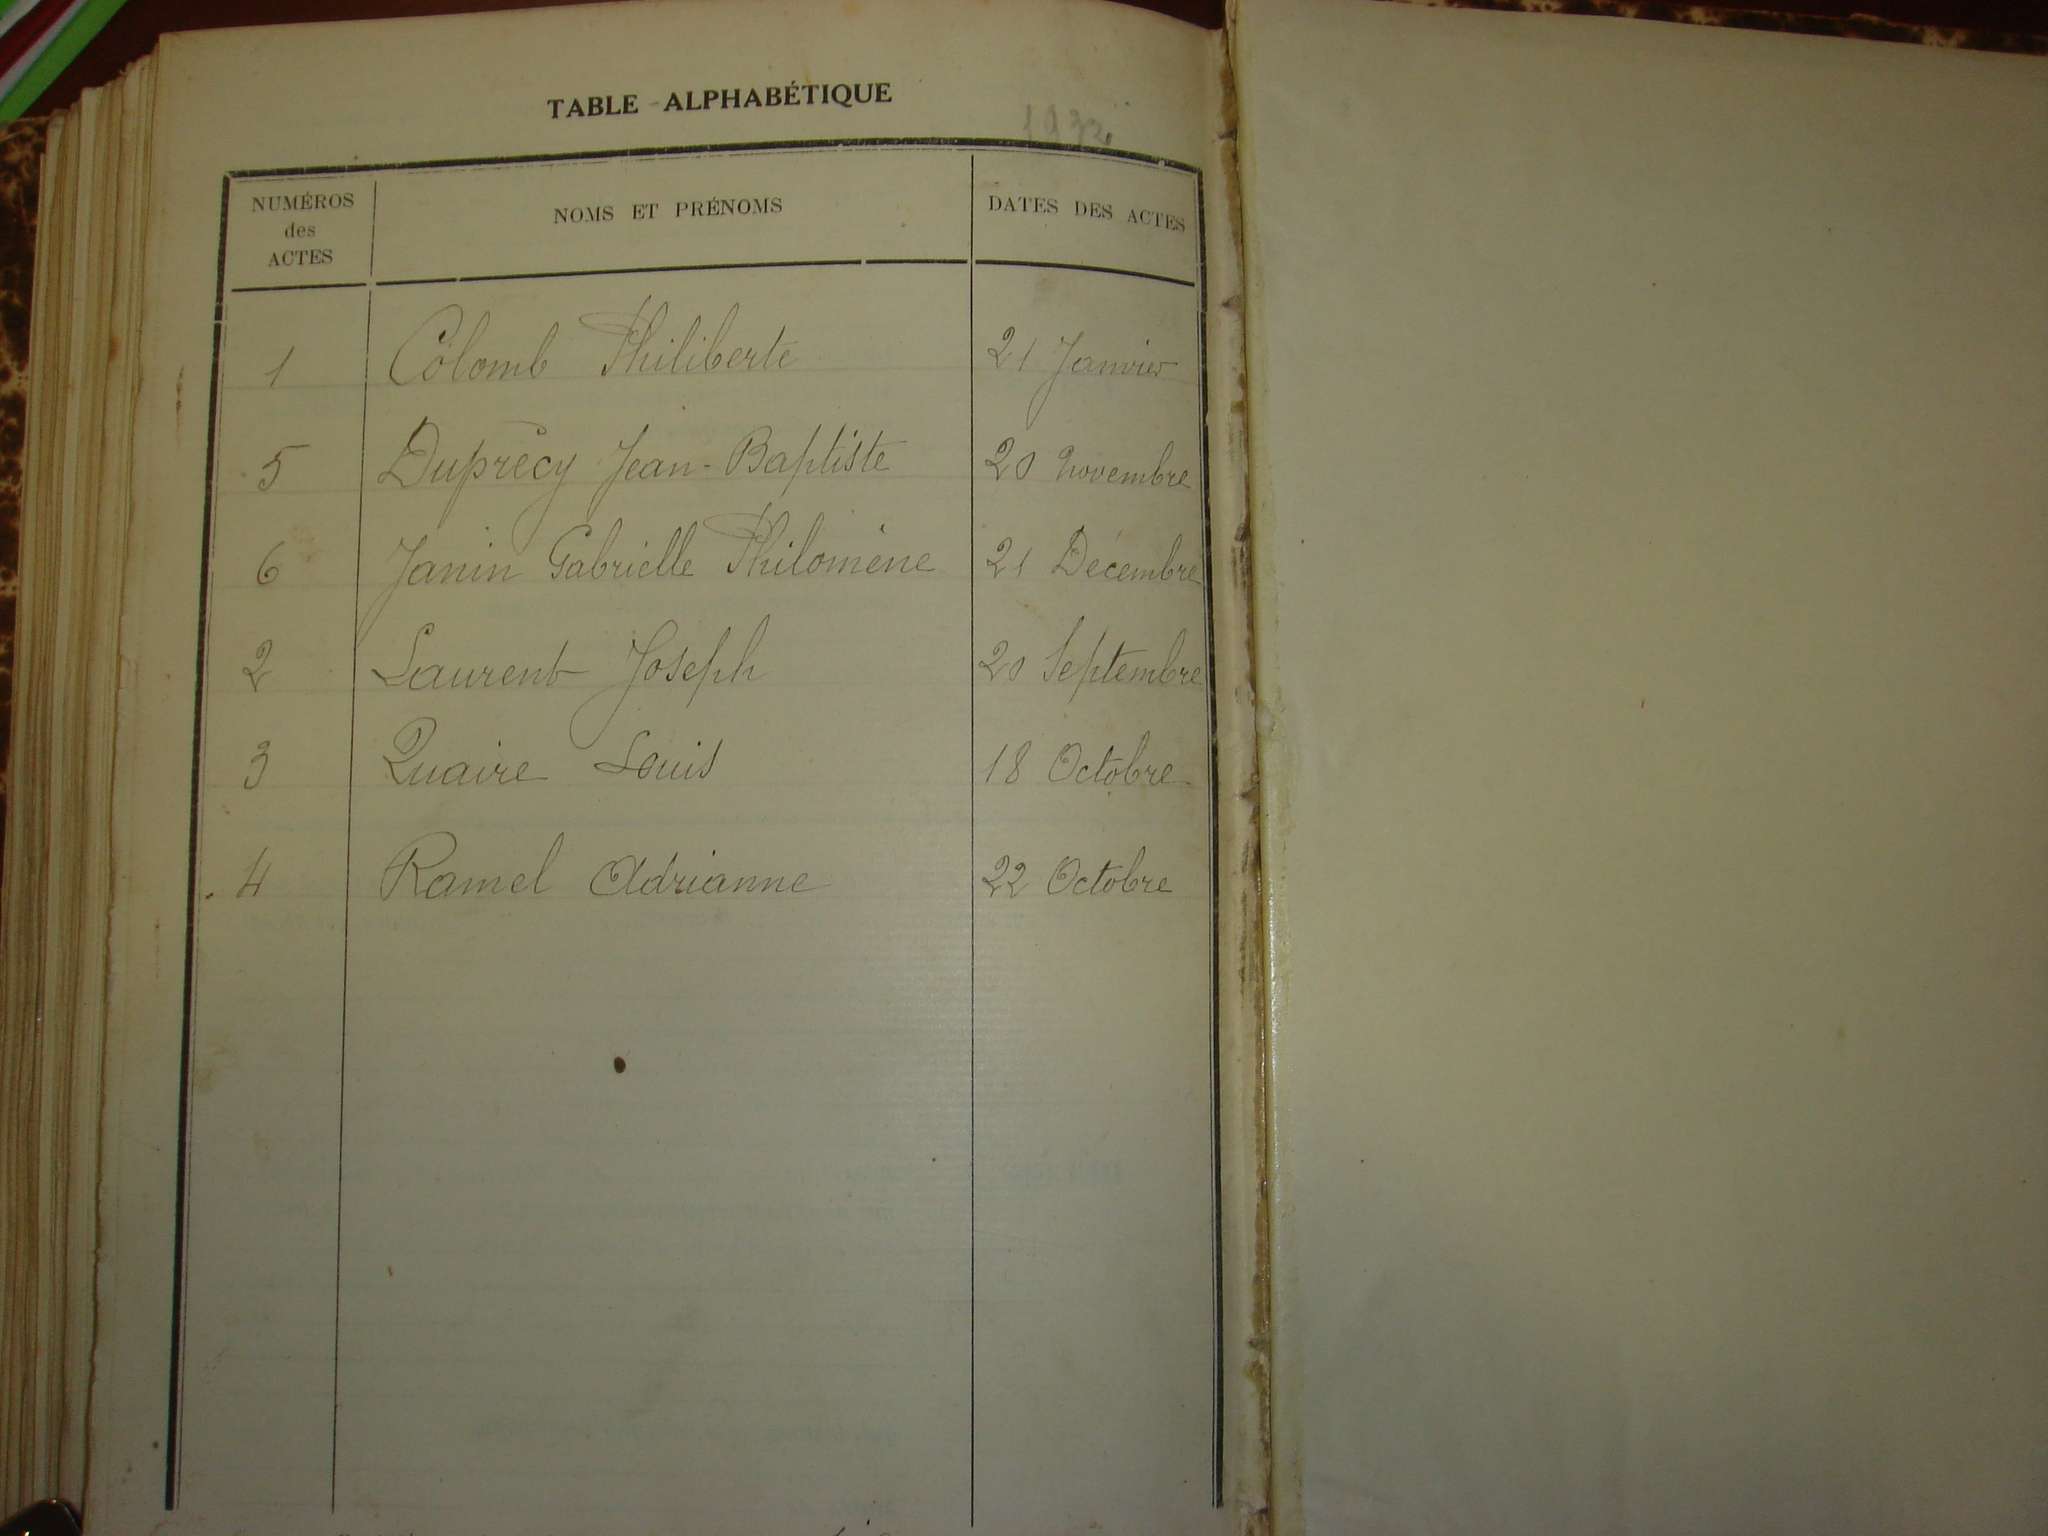 TABLE ALPHABÉTIQUE
1932
NUMÉROS des ACTES NOMS ET PRÉNOMS DATES DES ACTES
1 Colomb Philiberte 21 Janvier
5 Duprécy Jean-Baptiste 20 Novembre
6 Janin Gabrielle Philomène 21 Décembre
2 Laurent Joseph 20 Septembre
3 Quaire Louis 18 Octobre
4 Ramel Adrianne 22 Octobre